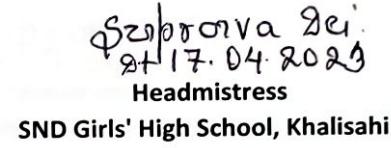 Suprova Dei
Dt 17.04.2023
Headmistress
SND Girls' High School, Khalisahi